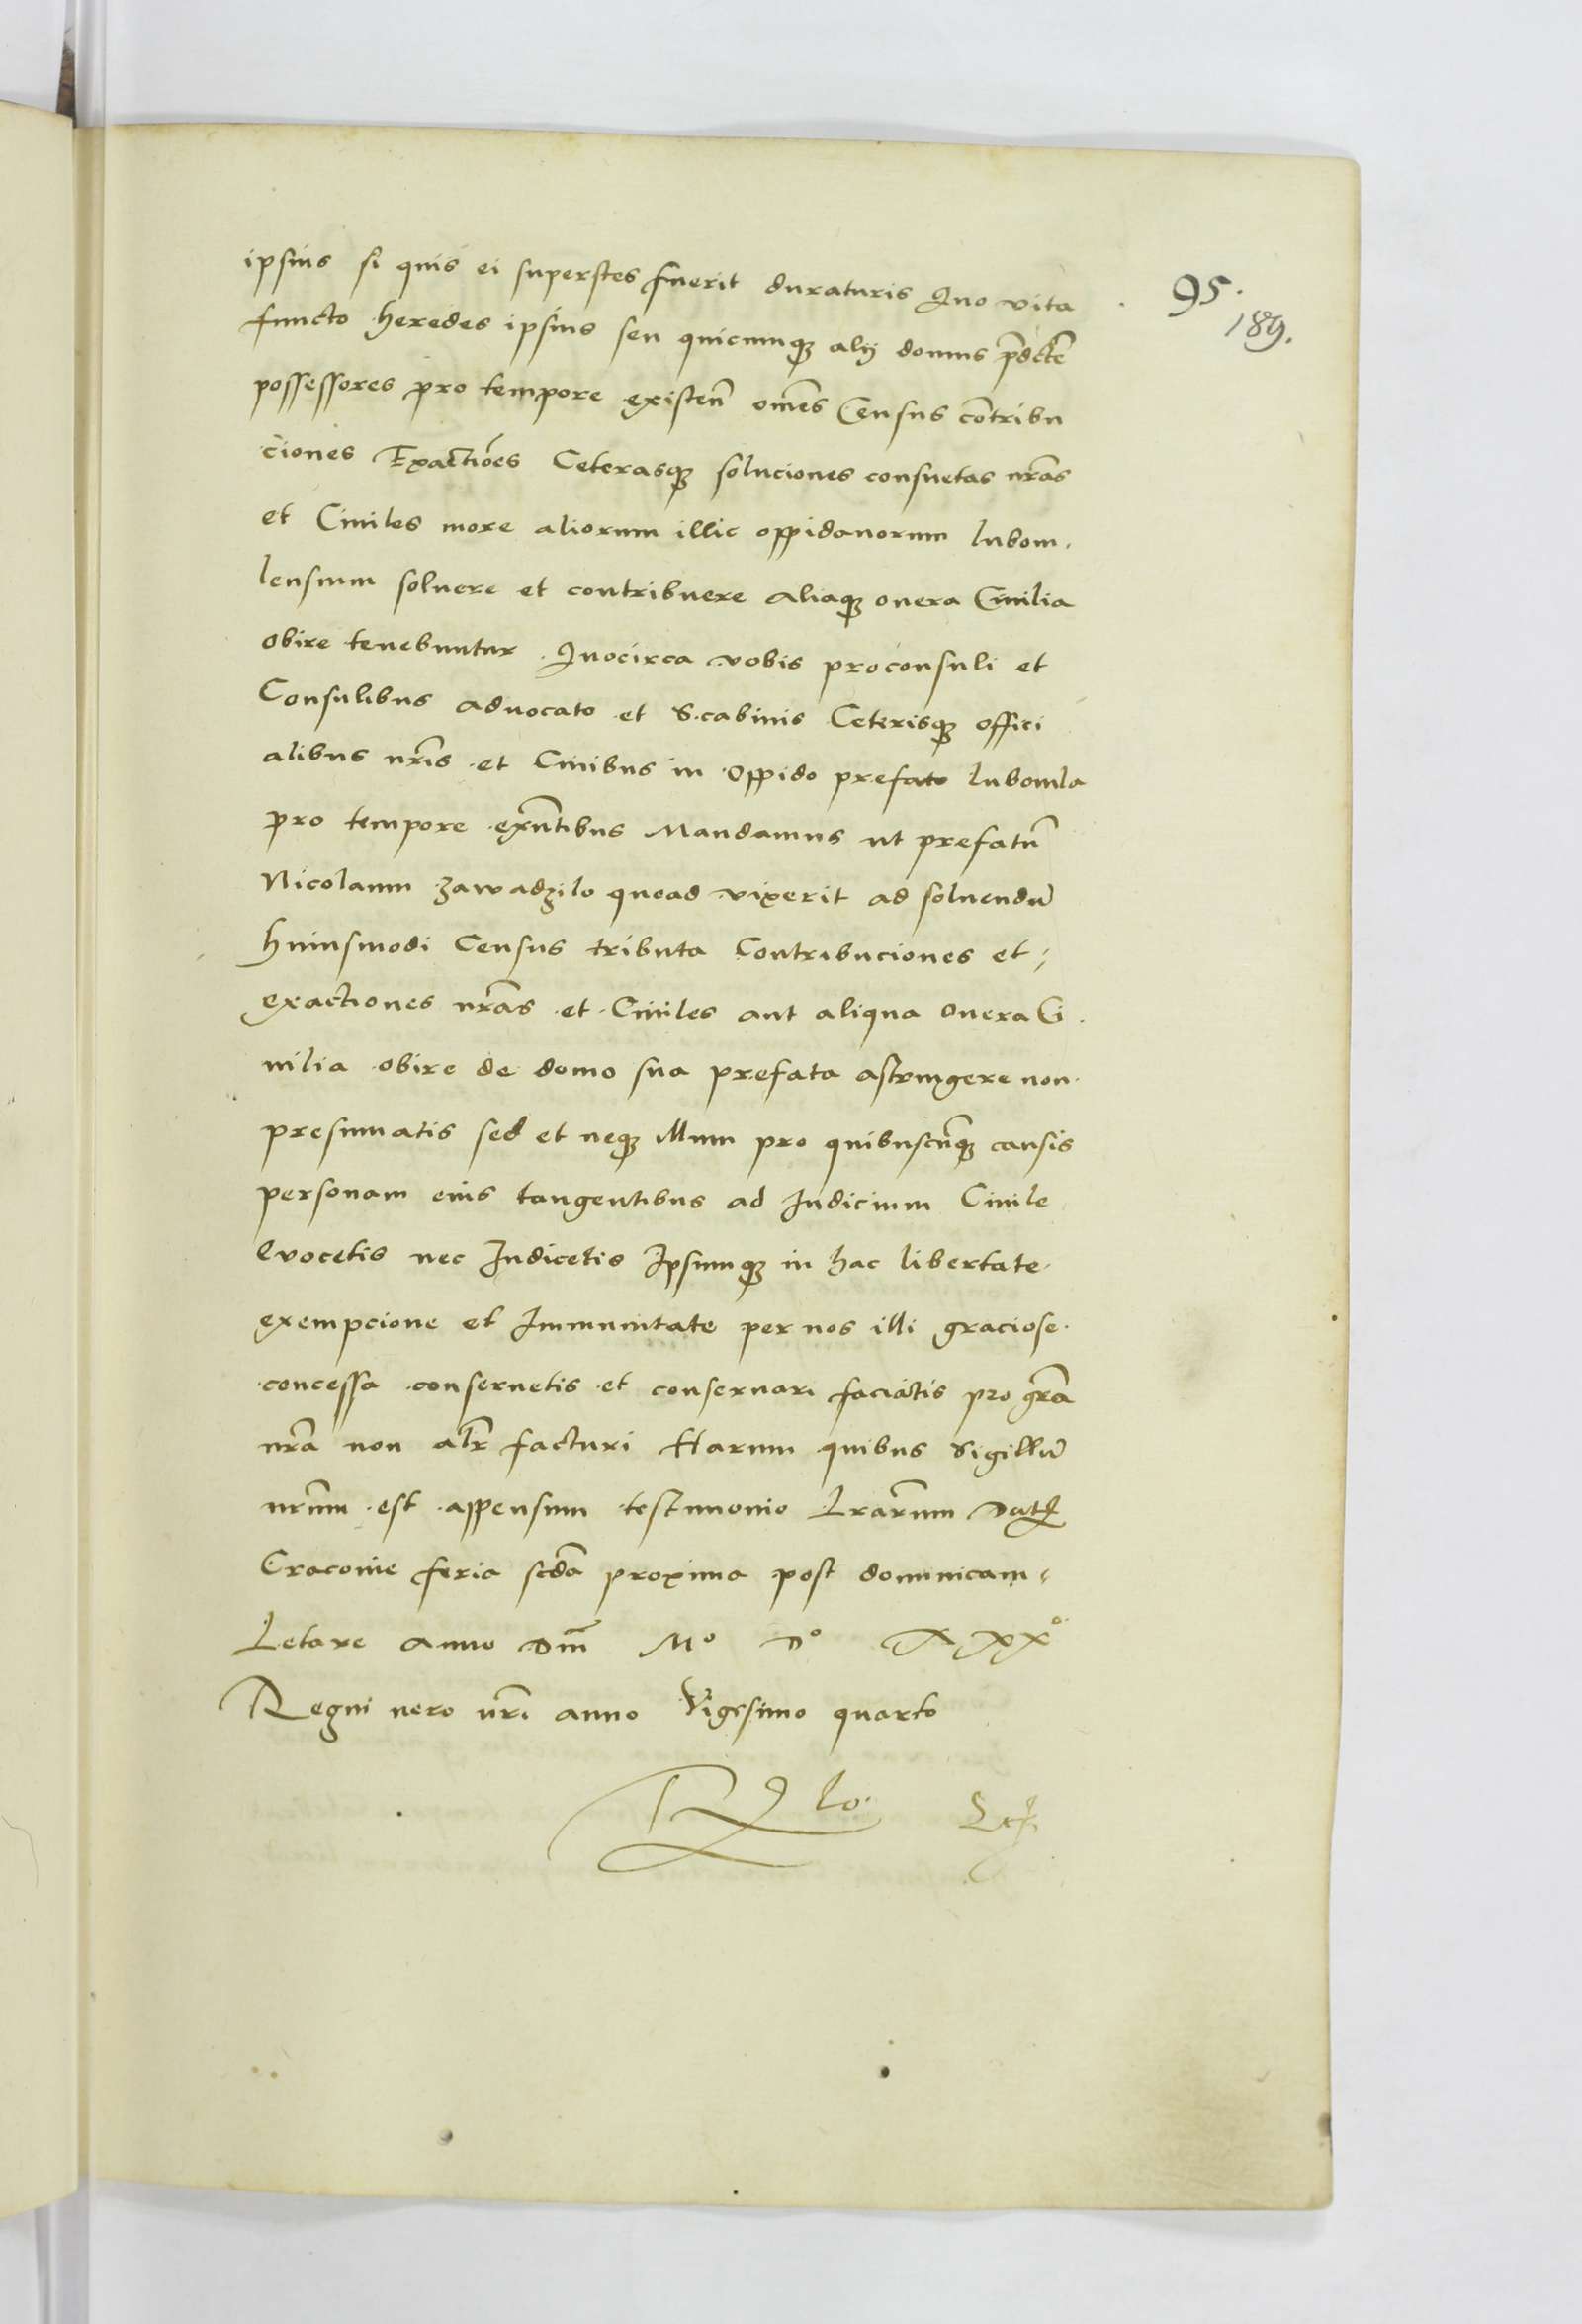 95.
189.
ipsius si quis ei superstes fuerit duraturis Quo vita
functo heredes ipsius seu quicumqȝ alij domus p̄dcte
possessores pro tempore existen̄ om̄es Census cōntribu
ciones Exactiōes Ceterasqȝ soluciones consuetas nr̄as
et Ciuiles more aliorum illic oppidanorum lubom
lensium soluere et contribuere aliaqȝ onera Ciuilia
obire tenebuntur Quocirca vobis proconsuli et
Consulibus aduocato et Scabinis Ceterisqȝ offici
alibus nr̄is et Ciuibus in oppido prefato lubomla
pro tempore exn̄tibus Mandamus ut prefatū
Nicolaum Zawadzilo quoad vixerit ad soluendū
huiusmodi Census tributa Contribuciones et
exactiones nr̄as et Ciuiles aut aliqua onera Ci
uilia obire de domo sua prefata astringere non
presumatis sed et neqȝ illum pro quibuscūqȝ causis
personam eius tangentibus ad Iudicium Ciuile
Euocetis nec Iudicetis Ipsumqȝ in hac libertate
exempcione et Immunitate per nos illi graciose
concessa conseruetis et conseruari faciatis pro gr̄a
nr̄a non alr̄ facturi Harum quibus Sigillū
nr̄um est appensum testimonio Lrārum Dat
Cracouie feria scd̄a proxima post dominicam
Letare Anno Dn̄i Mo Do XXXo
Regni uero nr̄i anno Vigesimo quarto